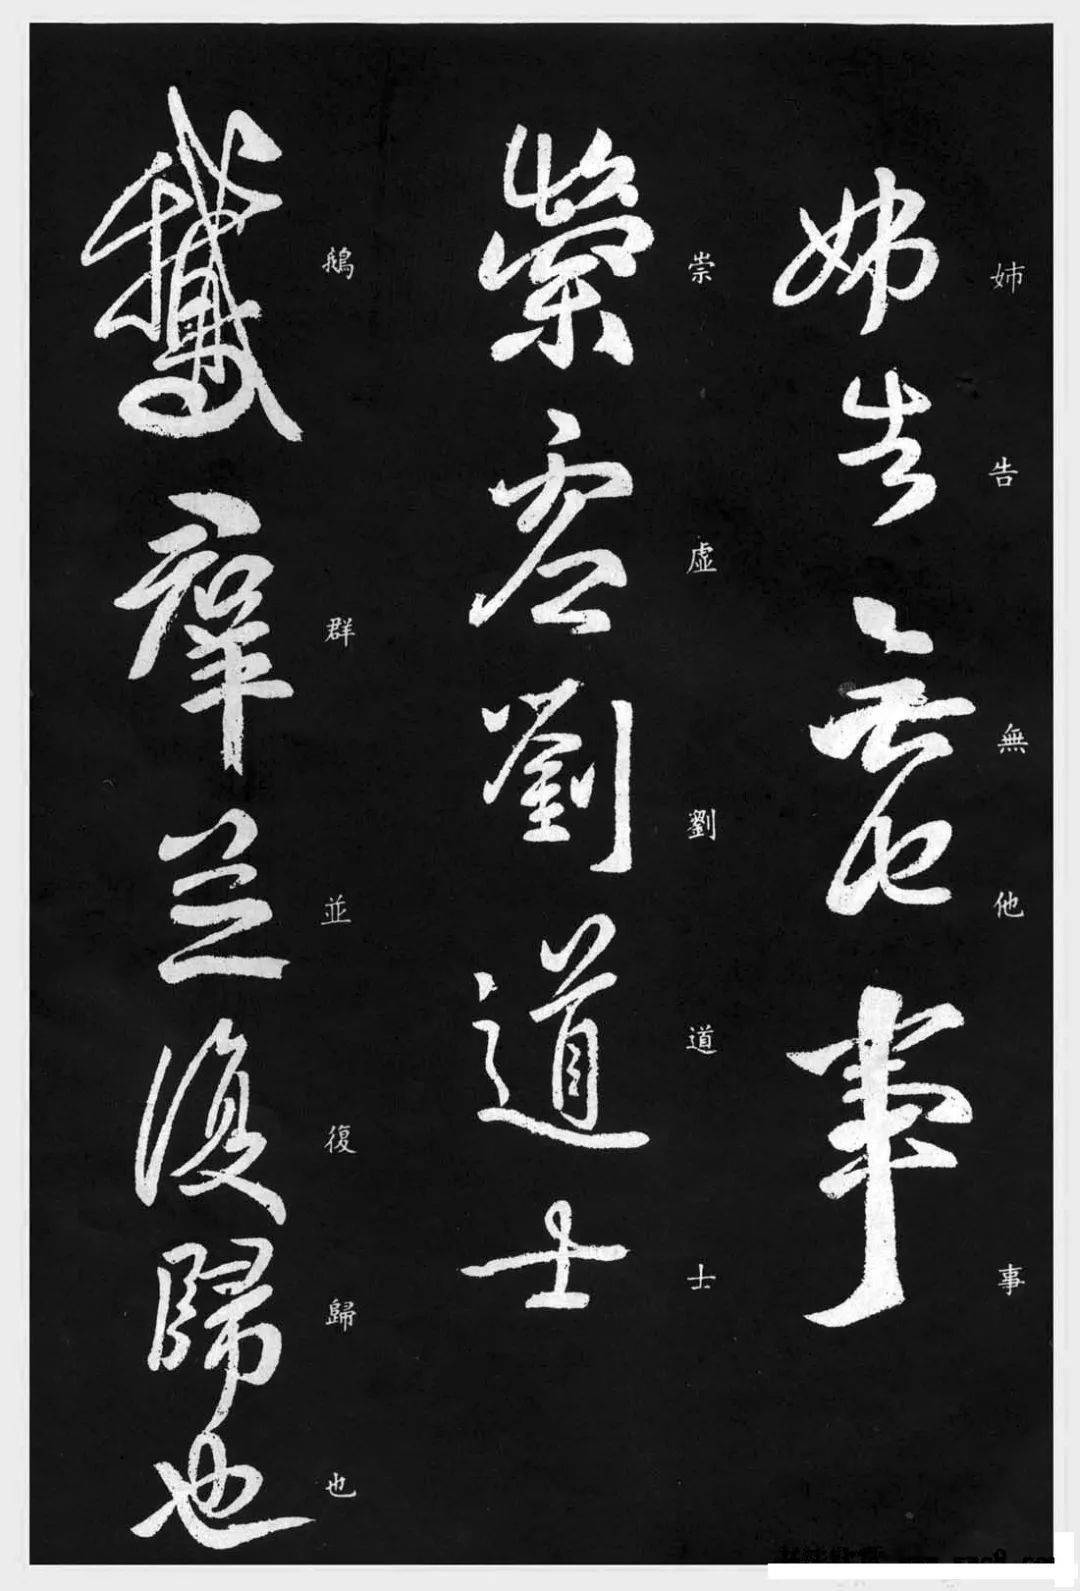 姉告無他事
崇虛劉道士
鵝群並復歸也